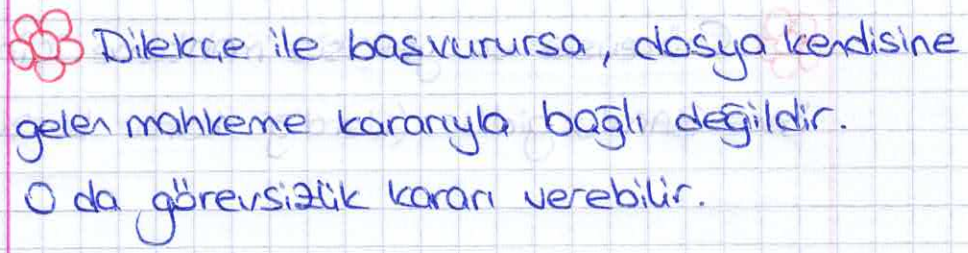 Dilekçe ile başvurursa, dosya kendisine
gelen mahkeme kararıyla bağlı değildir.
O da görevsizlik kararı verebilir.